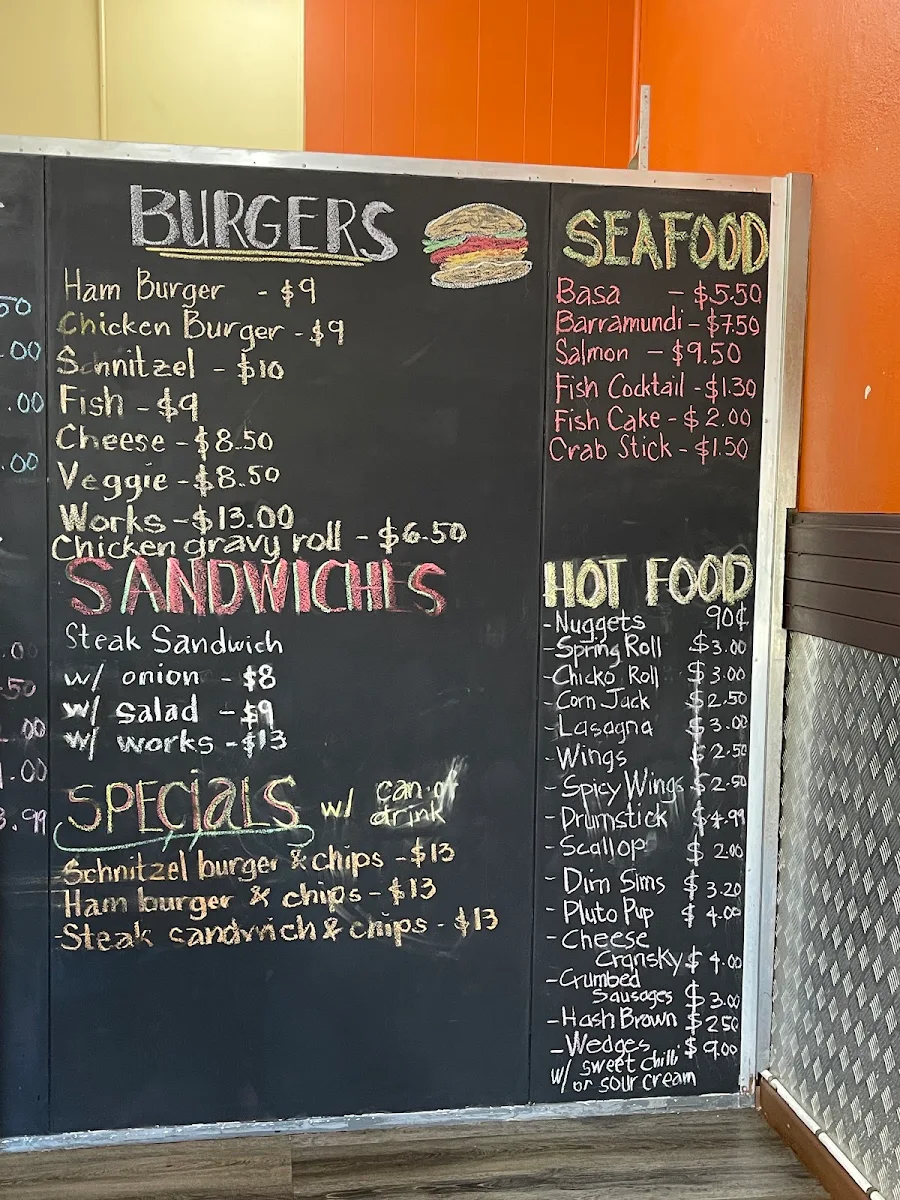 50
.00
.00
.00
.00
.50
.00
.00
3.99
BURGERS
Ham Burger - $9
Chicken Burger - $9
Schnitzel - $10
Fish - $9
Cheese - $8.50
Veggie - $8.50
Works - $13.00
Chicken gravy roll - $6.50
SANDWICHES
Steak Sandwich
w/ onion - $8
w/ salad - $9
w/ works - $13
SPECIALS w/ can of drink
Schnitzel burger & chips - $13
Ham burger & chips - $13
Steak sandwich & chips - $13
SEAFOOD
Basa - $5.50
Barramundi - $7.50
Salmon - $9.50
Fish Cocktail - $1.30
Fish Cake - $2.00
Crab Stick - $1.50
HOT FOOD
- Nuggets 90¢
- Spring Roll $3.00
- Chicko Roll $3.00
- Corn Jack $2.50
- Lasagna $3.00
- Wings $2.50
- Spicy Wings $2.50
- Drumstick $4.99
- Scallop $2.00
- Dim Sims $3.20
- Pluto Pup $4.00
- Cheese
Cransky $4.00
- Crumbed
Sausages $3.00
- Hash Brown $2.50
- Wedges $9.00
w/ sweet chilli
or sour cream